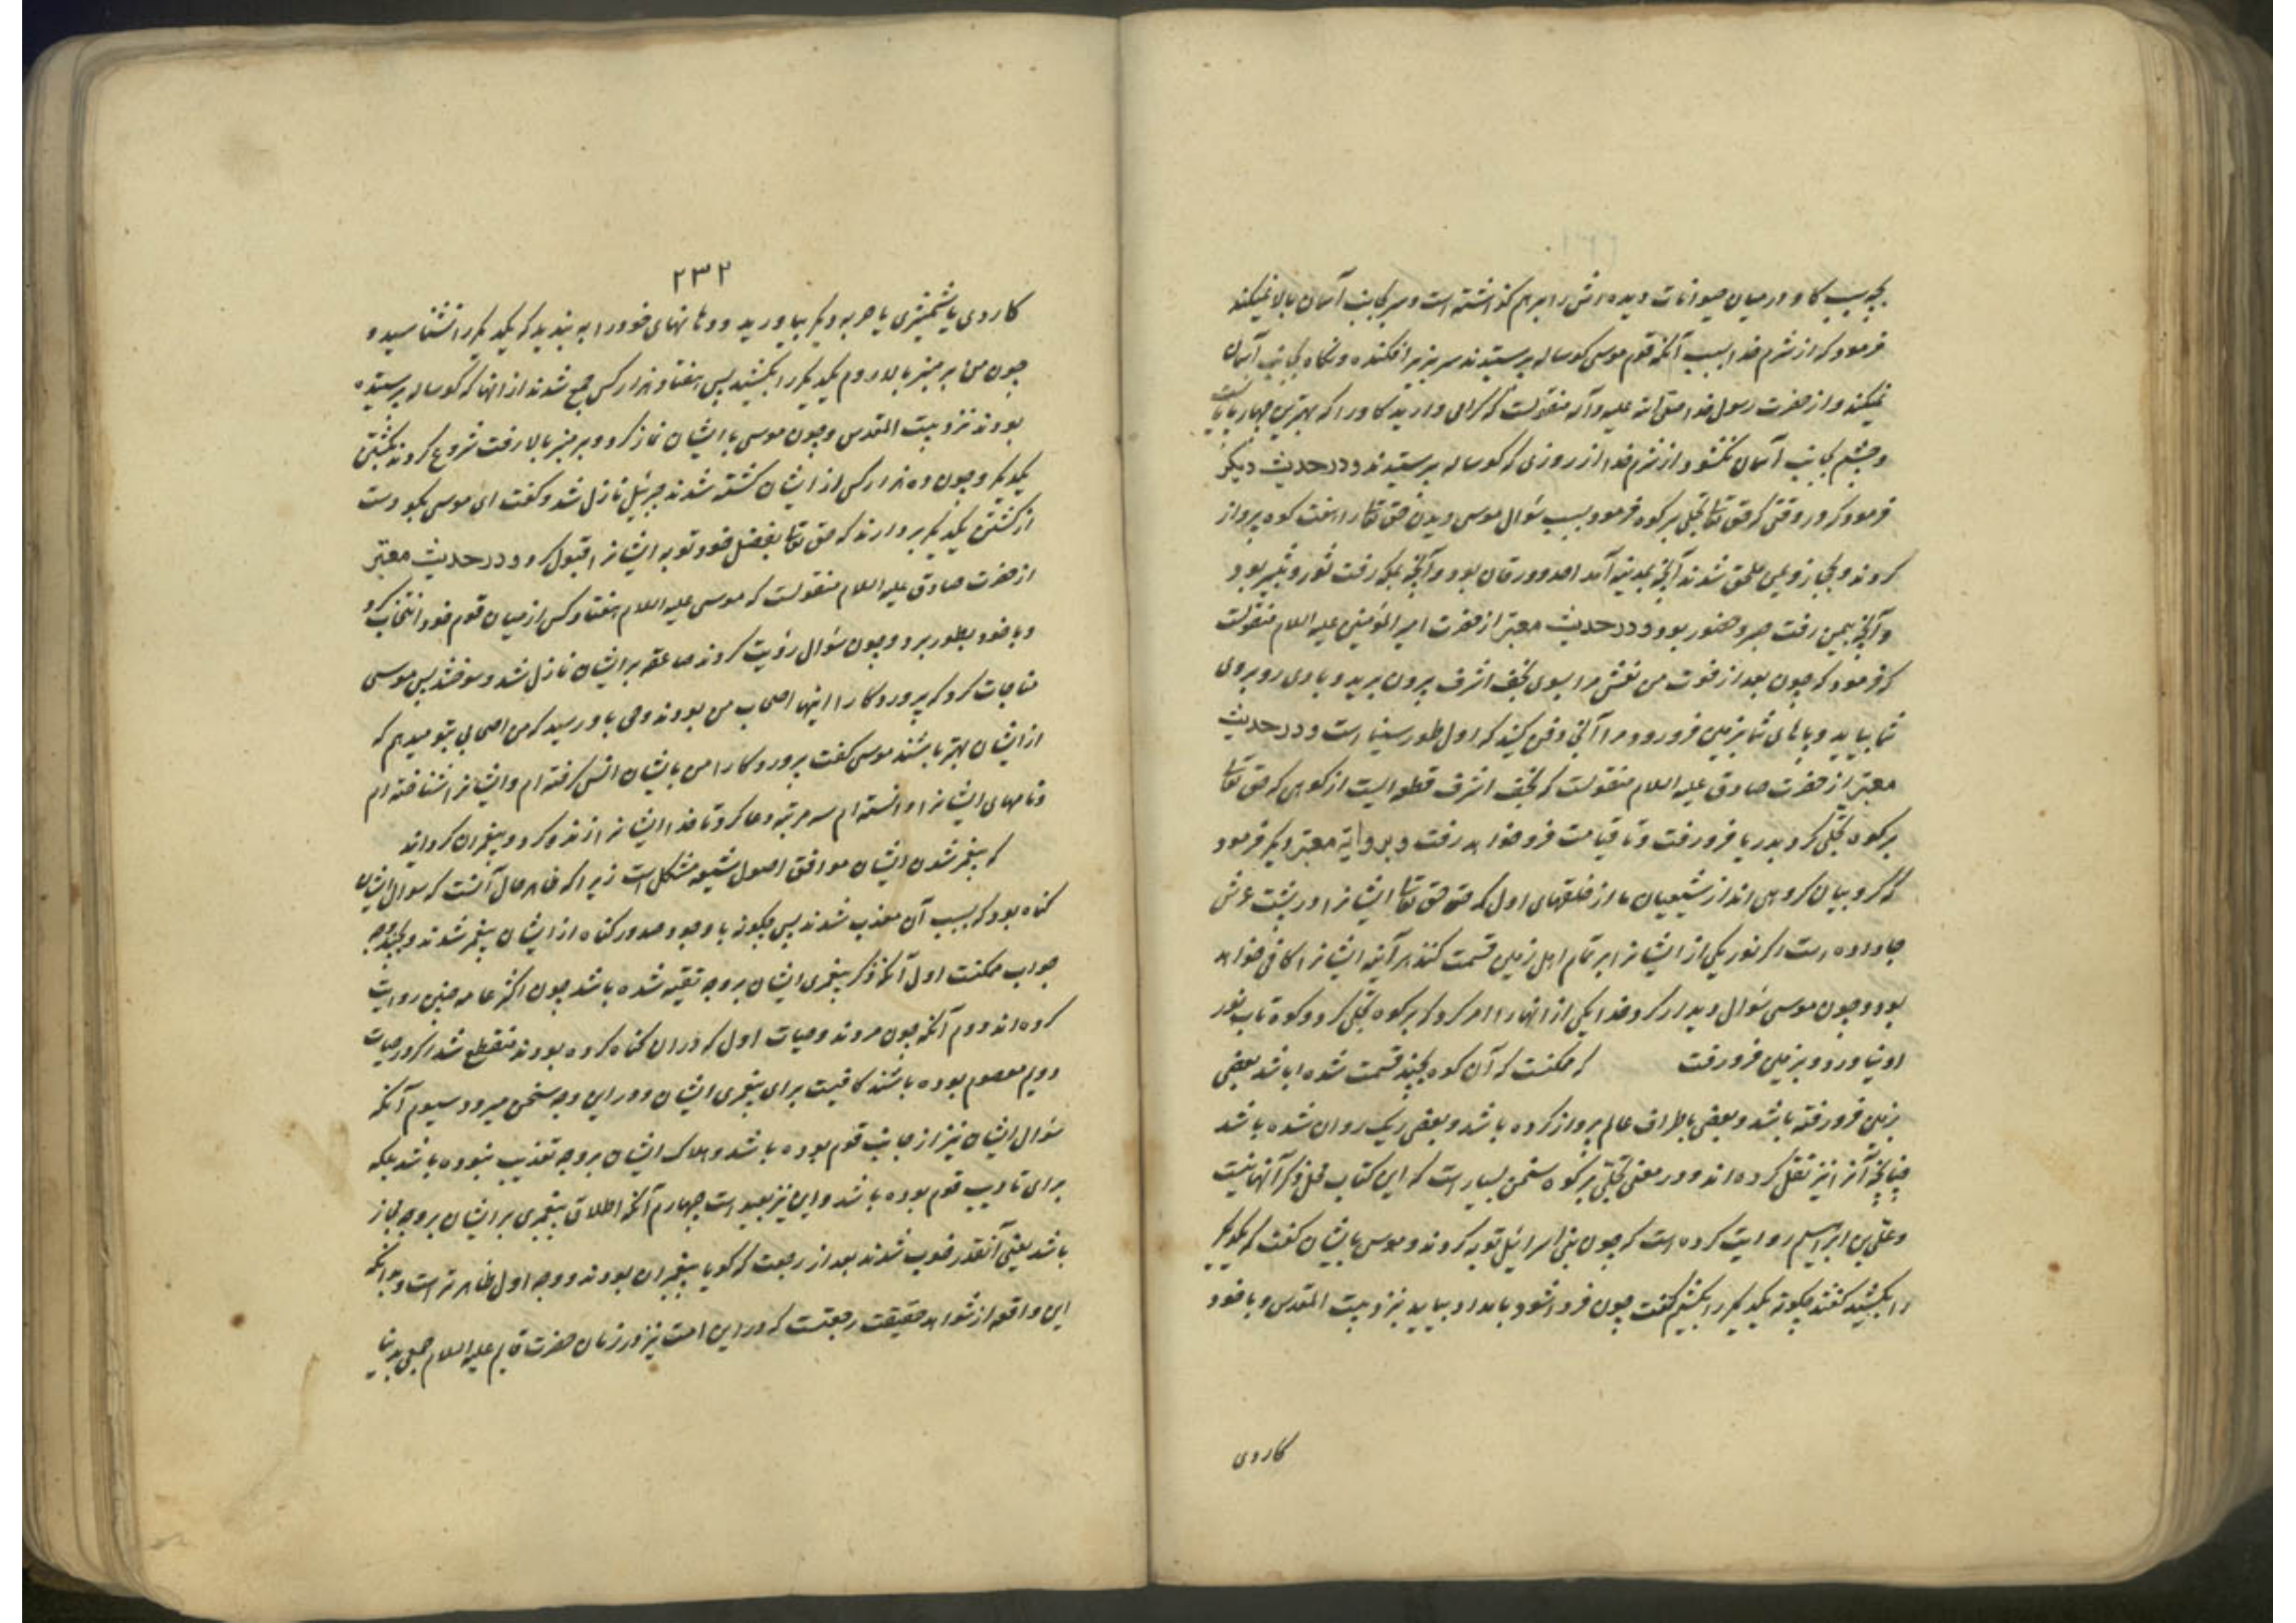 بچه سبب کاو در میان حیوانات دیده‌اش را برهم کذاشته است و سر بجانب آسمان بالا نمیکند
فرمود که از شرم خدا بسبب آنکه قوم موسی کوساله پرستیدند سر بزیر افکنده و نکاه بجانب آسمان
نمیکند و از حضرت رسول خدا صلی الله علیه و آله منقولست که کرامی دارید کاو را که بهترین چهارپایانست
و چشم بجانب آسمان نکشود از شرم خدا از روزی که کوساله پرستیدند و در حدیث دیکر
فرمود که در وقتی که حق تعالی تجلی بر کوه فرمود بسبب سؤال موسی دیدن حق تعالی را هفت کوه پرواز
کردند و بحجاز و یمن ملحق شدند آنچه بمدینه آمد احد و ورقان بود و آنچه بمکه رفت ثور و ثبیر بود
و آنچه بیمن رفت صبر و حضور بود و در حدیث معتبر از حضرت امیر المؤمنین علیه السلام منقولست
که فرمود که چون بعد از فوت من نعش مرا بسوی نجف اشرف بیرون برید و بادی رو بروی
شما بیاید و پاهای شما بزمین فرو رود مرا آنجا دفن کنید که اول طور سینا است و در حدیث
معتبر از حضرت صادق علیه السلام منقولست که نجف اشرف قطعه‌ایست از کوهی که حق تعالی
بر کوه تجلی کرد بدریا فرو رفت و تا قیامت فرو خواهد رفت و بروایة معتبر دیکر فرمود
که کروبیان کروهی‌اند از شیعیان ما از خلقهای اول که حق تعالی ایشانرا در پشت عرش
جا داده است اکر نور یکی از ایشانرا بر تمام اهل زمین قسمت کنند هر آینه ایشانرا کافی خواهد
بود و چون موسی سؤال دیدار کرد خدا یکی از آنها را امر کرد که بر کوه تجلی کرد و کوه تاب نور
او نیاورد و بزمین فرو رفت که ممکنست که آن کوه بچند قسمت شده باشد بعضی
بزمین فرو رفته باشد و بعضی باطراف عالم پرواز کرده باشد و بعضی ریک روان شده باشد
چنانچه آنرا نیز نقل کرده‌اند و در معنی تجلی بر کوه سخن بسیار است که این کتاب محل ذکر آنها نیست
و علی بن ابراهیم روایت کرده است که چون بنی اسرائیل توبه کردند و موسی بایشان کفت که یکدیکر
را بکشید کفتند چکونه یکدیکر را بکشیم کفت چون فردا شود بامداد بیایید بنزد بیت المقدس و با خود
کاردی
۲۳۲
کاردی یا شمشیری یا حربه دیکر بیاورید و دهانهای خود را به بندید که یکدیکر را نشناسید و
چون من بر منبر بالا روم یکدیکر را بکشید پس هفتاد هزار کس جمع شدند از آنها که کوساله پرستیده
بودند نزد بیت المقدس و چون موسی با ایشان نماز کرد و بر منبر بالا رفت شروع کردند بکشتن
یکدیکر و چون ده هزار کس از ایشان کشته شدند جبرئیل نازل شد و کفت ای موسی بکو دست
از کشتن یکدیکر بردارند که حق تعالی بفضل خود توبه ایشانرا قبول کرد و در حدیث معتبر
از حضرت صادق علیه السلام منقولست که موسی علیه السلام هفتاد کس از میان قوم خود انتخاب کرد
و با خود بطور برد و چون سؤال رؤیت کردند صاعقه بر ایشان نازل شد و سوختند پس موسی
مناجات کرد که پروردکارا اینها اصحاب من بودند وحی باو رسید که من اصحابی بتو میدهم که
از ایشان بهتر باشند موسی کفت پروردکارا من بایشان انس کرفته‌ام و ایشانرا شناخته‌ام
و نامهای ایشانرا دانسته‌ام سه مرتبه دعا کرد تا خدا ایشانرا زنده کرد و پیغمبران کردانید
که پیغمبر شدن ایشان موافق اصول شیعه مشکل است زیرا که ظاهر حال آنست که سوال ایشان
کناه بود که بسبب آن معذب شدند پس چکونه با وجود صدور کناه از ایشان پیغمبر شدند و بچند وجه
جواب ممکنست اول آنکه ذکر پیغمبری ایشان بر وجه تقیه شده باشد چون اکثر عامه چنین روایت
کرده‌اند دوم آنکه چون مردند و حیات اول که در آن کناه کرده بودند منقطع شد اکر در حیات
دویم معصوم بوده باشند کافیست برای پیغمبری ایشان و در این وجه سخن میرود سیوم آنکه
سؤال ایشان نیز از جانب قوم بوده باشد و هلاک ایشان بر وجه تعذیب نبوده باشد بلکه
برای تادیب قوم بوده باشد و این نیز بعید است چهارم آنکه اطلاق پیغمبری بر ایشان بر وجه مجاز
باشد یعنی آنقدر خوب شدند بعد از رجعت که کویا پیغمبران بودند و وجه اول ظاهر تر است و بدانکه
این واقعه از شواهد حقیقت رجعتست که در این امت نیز در زمان حضرت قایم علیه السلام جمعی بدنیا